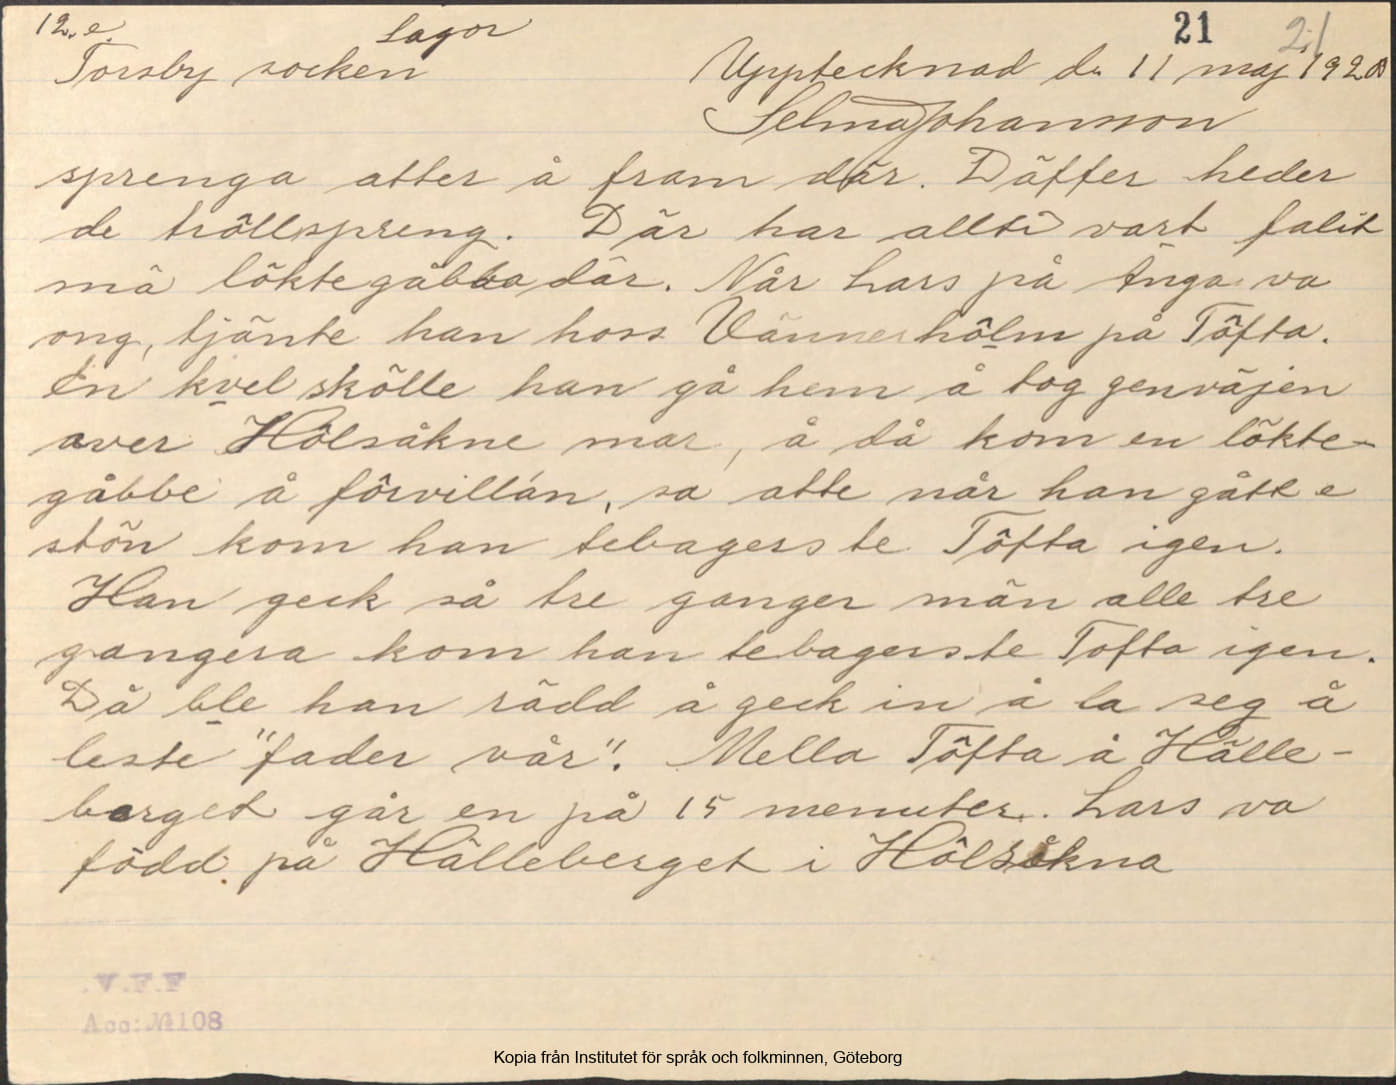 12. e. Sagor 21 21
Torsby socken Upptecknad d. 11 maj 1920
Selma Johansson
sprenga atter å fram där. Däffer heder
de trôllspreng. Där har allti vart falit
mä löktegåbba där. Når Lars på Änga va
ong, tjänte han hoss Vännerhôlm på Tôfta.
En kvel skölle han gå hem å tog genväjen
aver Hôlsåkne mar, å då kom en lökte-
gåbbe å fôrvillán, sa atte når han gått e
stön kom han tebagers te Tôfta igen.
Han geck så tre ganger män alle tre
gangera kom han tebagers te Tofta igen.
Då ble han rädd å geck in å la seg å
leste "fader vår". Mella Tôfta å Hälle-
berget går en på 15 menuter. Lars va
född på Hälleberget i Hôlsåkna
V.F.F
Acc: № 108
Kopia från Institutet för språk och folkminnen, Göteborg